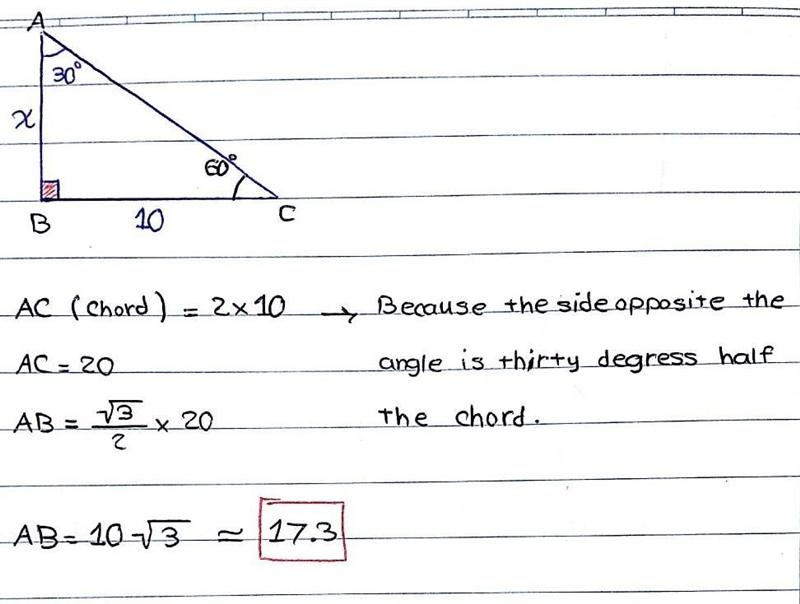 A
30°
x
60°
B
10
C
AC (chord) = 2×10 → Because the side opposite the
AC = 20 angle is thirty degress half
AB = √3/2 × 20 the chord.
AB = 10√3 ≃ 17.3